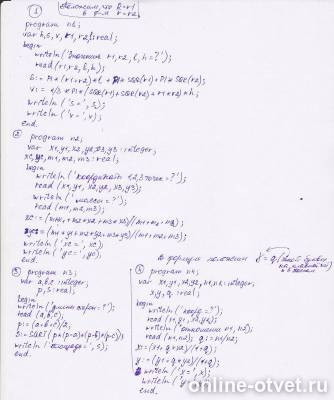 ① Положим, что R=r1
в r=r2
program n1;
var h, s, v, r1, r2, l: real;
begin
writeln('Значения r1, r2, l, h=?');
read(r1, r2, l, h);
S:= Pi*(r1+r2)*l + Pi*SQR(r1)+Pi*SQR(r2);
V:= 1/3*Pi*(SQR(r1)+SQR(r2)+r1*r2)*h;
writeln('s=', s);
writeln('v=', v);
end.
② program n2;
var x1, y1, x2, y2, x3, y3: integer;
xc, yc, m1, m2, m3: real;
begin
writeln('координаты 1, 2, 3 точек=?');
read(x1, y1, x2, y2, x3, y3);
writeln('массы=?');
read(m1, m2, m3);
xc:=(m1*x1+m2*x2+m3*x3)/(m1+m2+m3);
yc:=(m1*y1+m2*y2+m3*y3)/(m1+m2+m3);
writeln('xc=', xc);
writeln('yc=', yc);
end.
В формуле положим
③ program n3
var a, b, c: integer;
p, s: real;
begin
writeln('длины сторон=?');
read(a, b, c);
p:=(a+b+c)/2;
S:=SQRT(p*(p-a)*(p-b)*(p-c));
writeln('площадь=', s);
end.
④ program n4;
var x1, y1, x2, y2, n1, n2: integer;
x, y, q: real;
begin
writeln('коорд=?');
read(x1, y1, x2, y2);
writeln('отношение n1, n2');
read(n1, n2); q:=n1/n2;
x:=(x1+q*x2)/(1+q);
y:=(y1+q*y2)/(1+q);
writeln('x=', x);
end.
online-otvet.ru